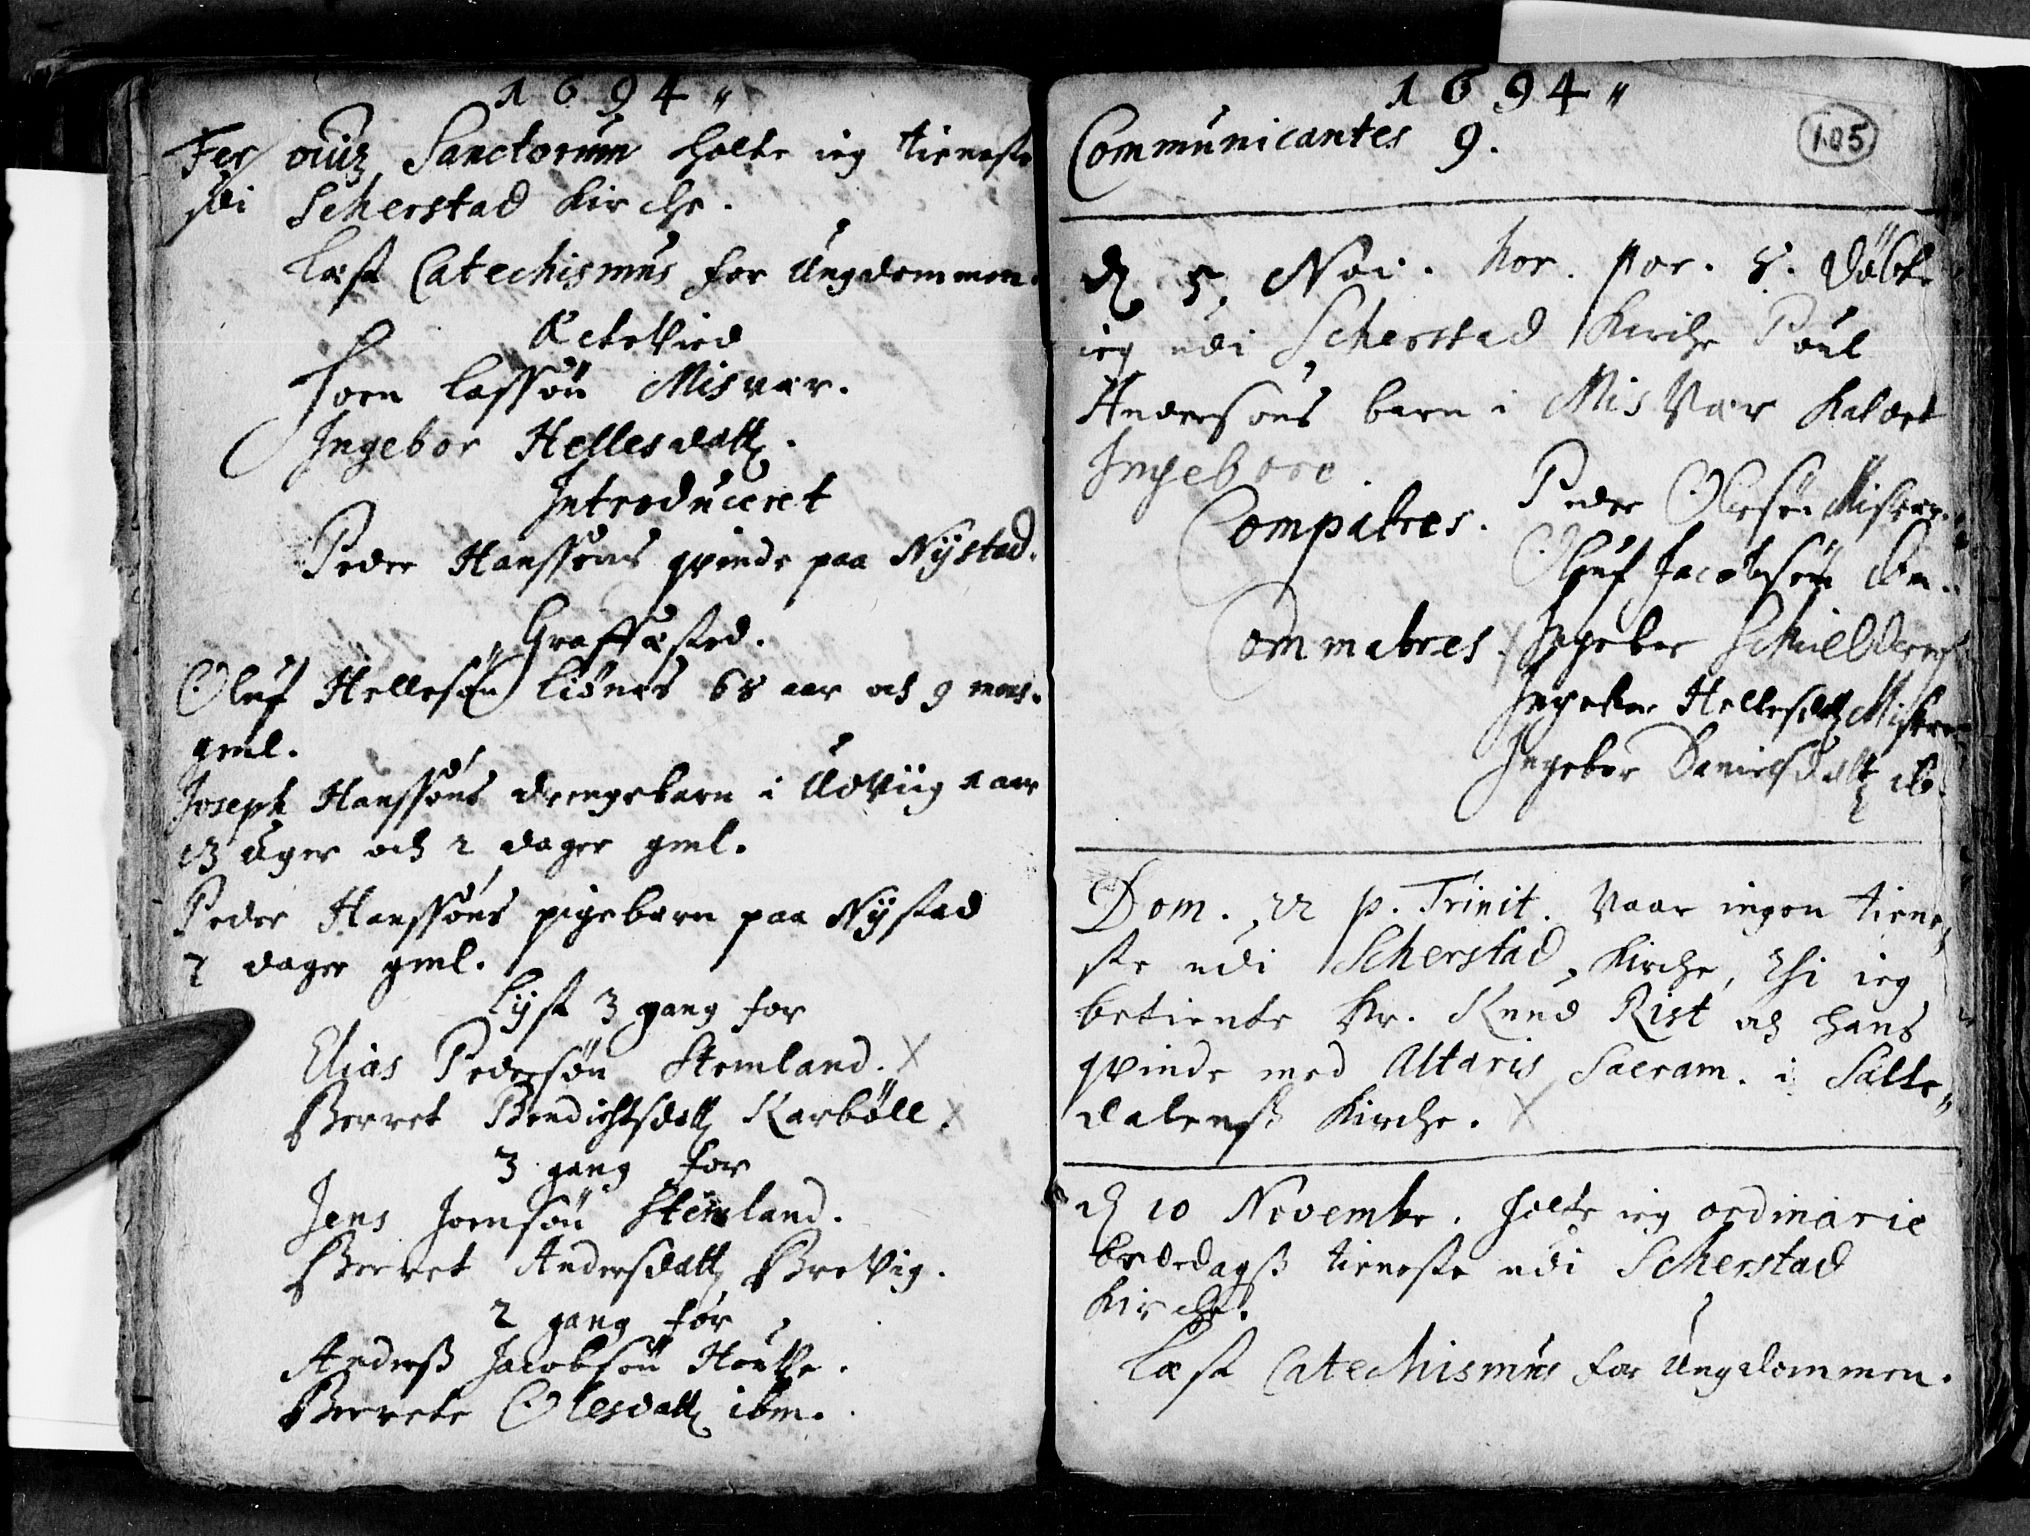 1694„
Fer oiuz Sanctorum holte ieg tieneste
udi Scherstad Kirche.
Læst Catechismus for Ungdommen.
Ectevied
Joen Lassøn Misvær.
Ingebor Hellesdatt.
Introduceret
Peder Hanssøns qvinde paa Nystad.
Graffæsted.
Oluf Hellesøn Lidnes 68 aar och 9 maan.
gml.
Joseph Hanssøns drengebarn i Udviig 1 aar
13 uger och 2 dager gml.
Peder Hanssøns pigebarn paa Nystad
2 dager gml.
Lyst 3 gang for
Elias Pedersøn Stemland. X
Berret Bendichtsdatt Karbøll. X
3 gang for
Jens Joensøn Stemland.
Berret Andersdatt Brevig.
2 gang for
Anderss Jacobsøn
Berrete Olesdatt ibm.
1694„
105
Communicantes 9.
d 5. Nov. hor. 8. døbte
ieg udi Scherstad Kirche Poul
Andersøns barn i Misvær kaldet
Ingebore.
Compatres. Peder Olesøn Misvær.
Oluf Jacobsøn ibm.
Commatres. Ingebor
Ingebor Hellesdatt Misvær
Ingebor Danielsdatt ib.
Dom. 22 p. Trinit. vaar ingen tiene„
ste udi Scherstad Kirche, thi ieg
betiente Hr. Knud Rist och hans
qvinde med Altaris Sacram. i Salte„
dalenss Kirche. X
d 10 Novembr. holte ieg ordinarie
bededagss tieneste udi Scherstad
Kirche.
Læst Catechismus for Ungdommen.